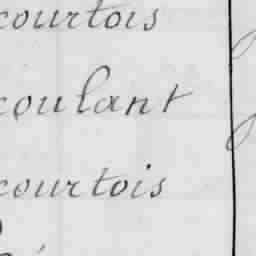 courtois
coulant
courtois